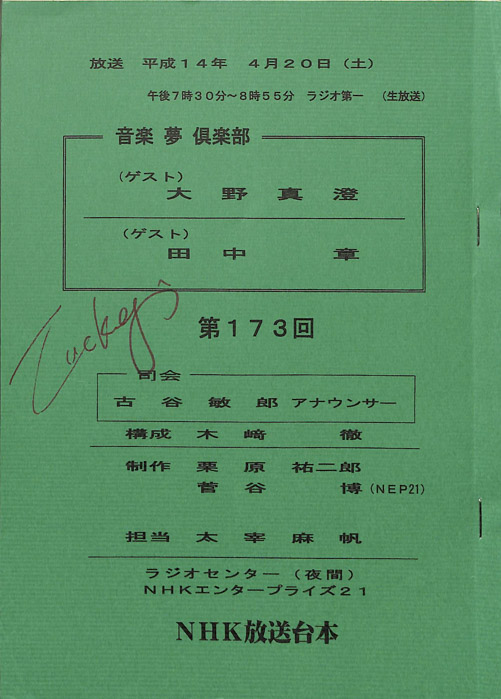 放送　平成１４年　４月２０日（土）
午後７時３０分～８時５５分　ラジオ第一　（生放送）
音楽 夢 倶楽部
（ゲスト）
大野真澄
（ゲスト）
田中章
Tuckey's
第１７３回
司会
古谷敏郎 アナウンサー
構成 木﨑徹
制作 栗原祐二郎
菅谷博（NEP21）
担当 太宰麻帆
ラジオセンター（夜間）
ＮＨＫエンタープライズ２１
NHK放送台本